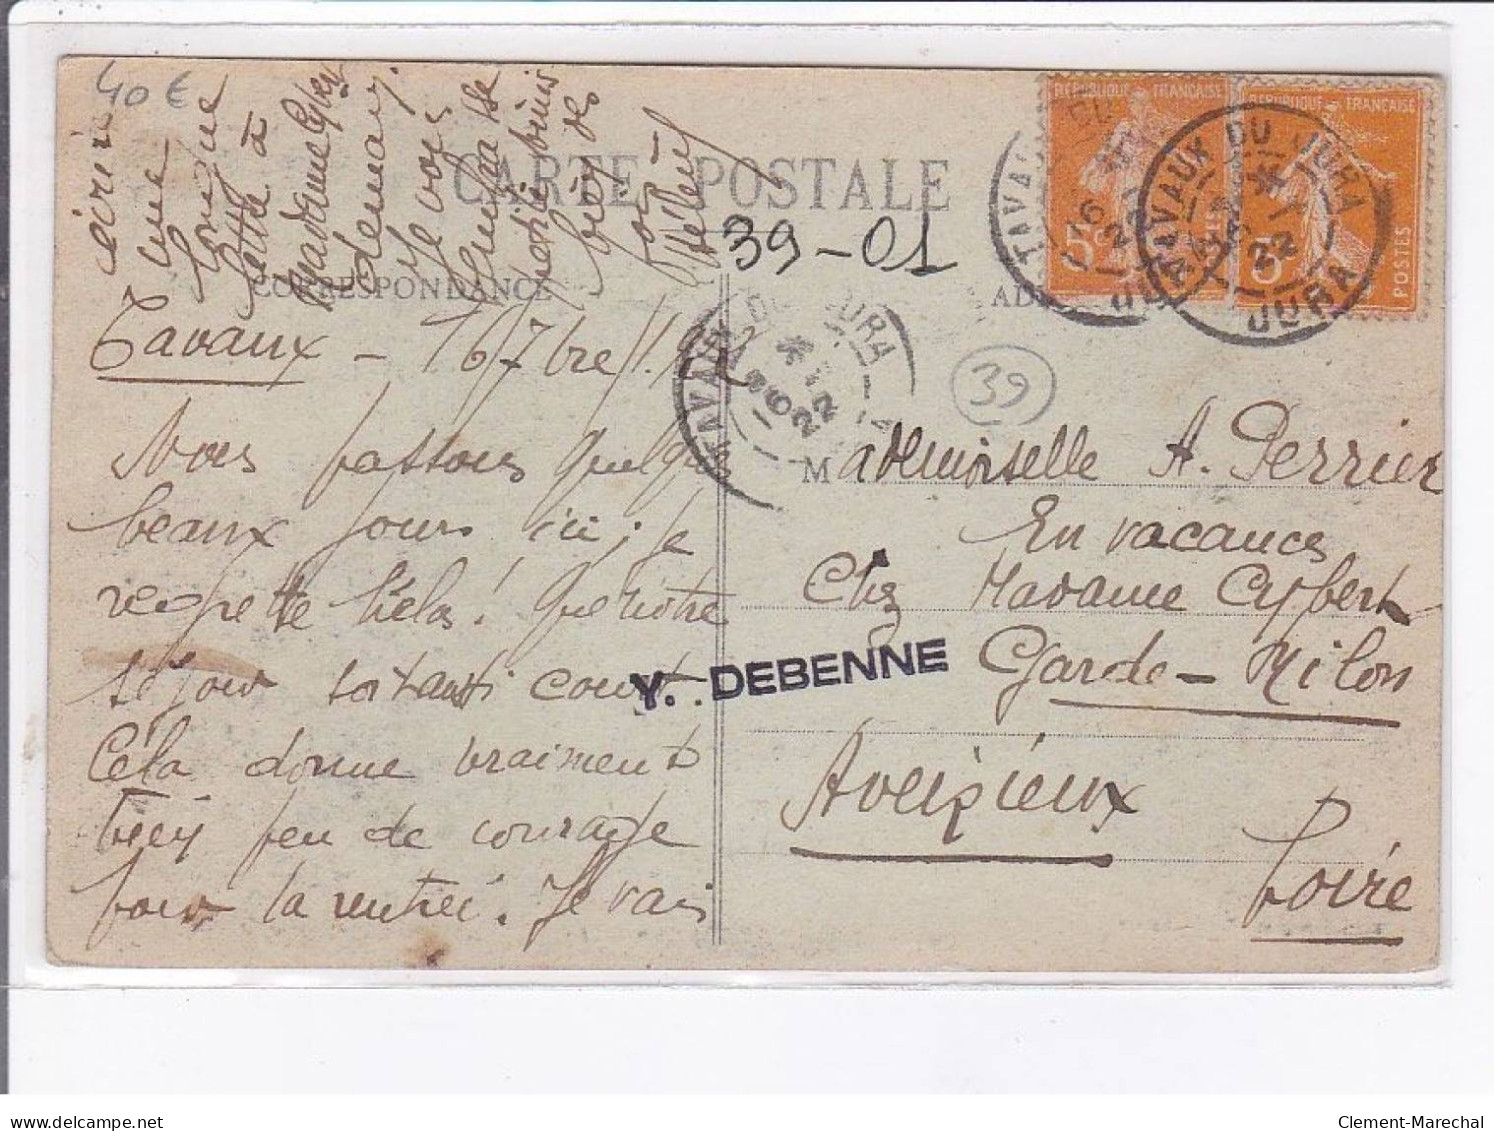 40 €
écrire
une
longue
lettre à
Madame Cybert
demain.
Je vous
embrasse
petite
bien des
CARTE POSTALE
39-01
CORRESPONDANCE
AD
RÉPUBLIQUE FRANÇAISE
5c
RÉPUBLIQUE FRANÇAISE
POSTES
TAVAUX DU JURA
16
22
JURA
TAVAUX DU JURA
22
JURA
TAVAUX DU JURA
16
22
39
Tavaux - 16 7bre
Nous passons quelques
beaux jours ici ; je
regrette hélas ! que notre
séjour soit aussi court
Cela donne vraiment
bien peu de courage
pour la rentrée. Je vais
Mademoiselle A. Perrier
En vacances
Chez Madame Cybert
Garde-Milon
Y. DEBENNE
Aveizieux
Loire
delcampe.net
Clement-Marechal